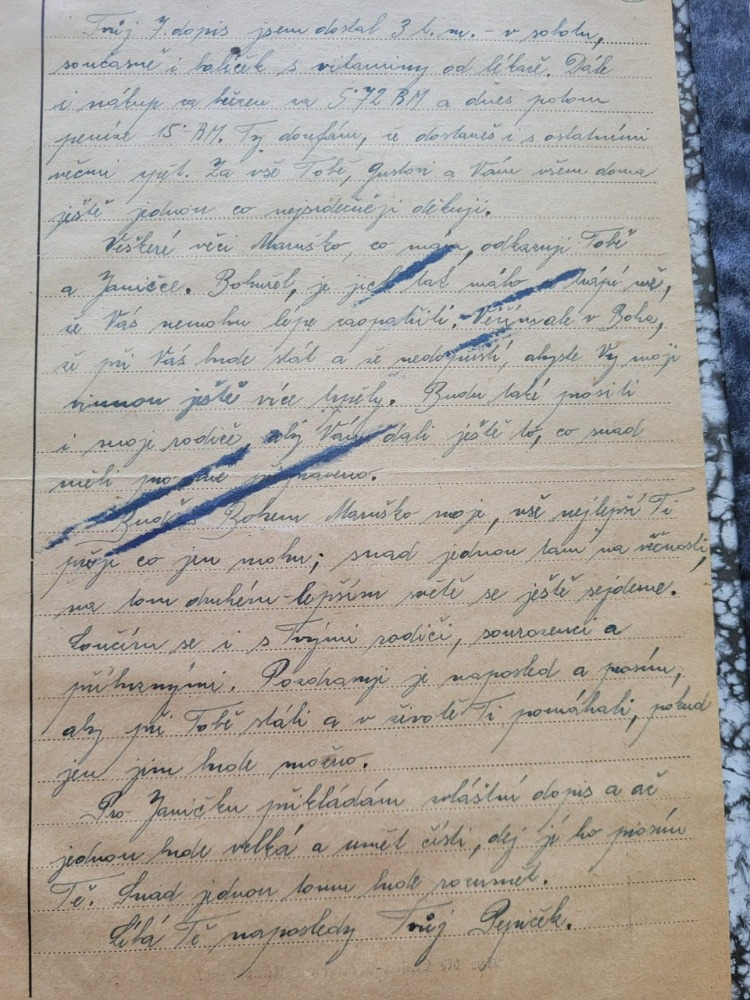 Tvůj 7. dopis jsem dostal 3 t. m. - v sobotu,
současně i balíček s vitaminy od lékaře. Dále
i nákup za březen za 5·72 RM a dnes potom
peníze 15·- RM. Ty doufám, že dostaneš i s ostatními
věcmi zpět. Za vše Tobě, Gustovi a Vám všem doma
ještě jednou co nejsrdečněji děkuji.
Veškeré věci Maruško, co mám, odkazuji Tobě
a Janičce. Bohužel, je jich tak málo a trápí mě,
že Vás nemohu lépe zaopatřiti. Věřím ale v Boha,
že při Vás bude stát a že nedopustí, abyste Vy mojí
vinnou ještě více trpěly. Budu také prositi
i moje rodiče, aby Vám dali ještě to, co snad
měli pro mne připraveno.
Buď s Bohem Maruško moje, vše nejlepší Ti
přeji co jen mohu; snad jednou tam na věčnosti,
na tom druhém lepším světě se ještě sejdeme.
Loučím se i s Tvými rodiči, sourozenci a
příbuznými. Pozdravuji je naposled a prosím,
aby při Tobě stáli a v životě Ti pomáhali, pokud
jen jim bude možno.
Pro Janičku přikládám zvláštní dopis a až
jednou bude velká a umět čísti, dej jí ho prosím
Tě. Snad jednou tomu bude rozumět.
Líbá Tě naposledy Tvůj Pepíček.